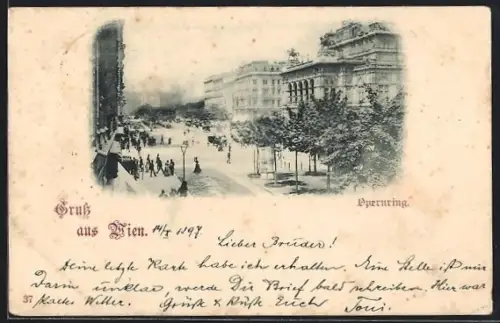 Opernring.
Gruß
aus Wien. 14/X 1897
Lieber Bruder!
Deine letzte Kart habe ich erhalten. Eine Stelle ist mir
Darin unklar, werde Dir Brief bald schreiben. Hier war
37 Wetter. Grüße & Küße Euch Toni.